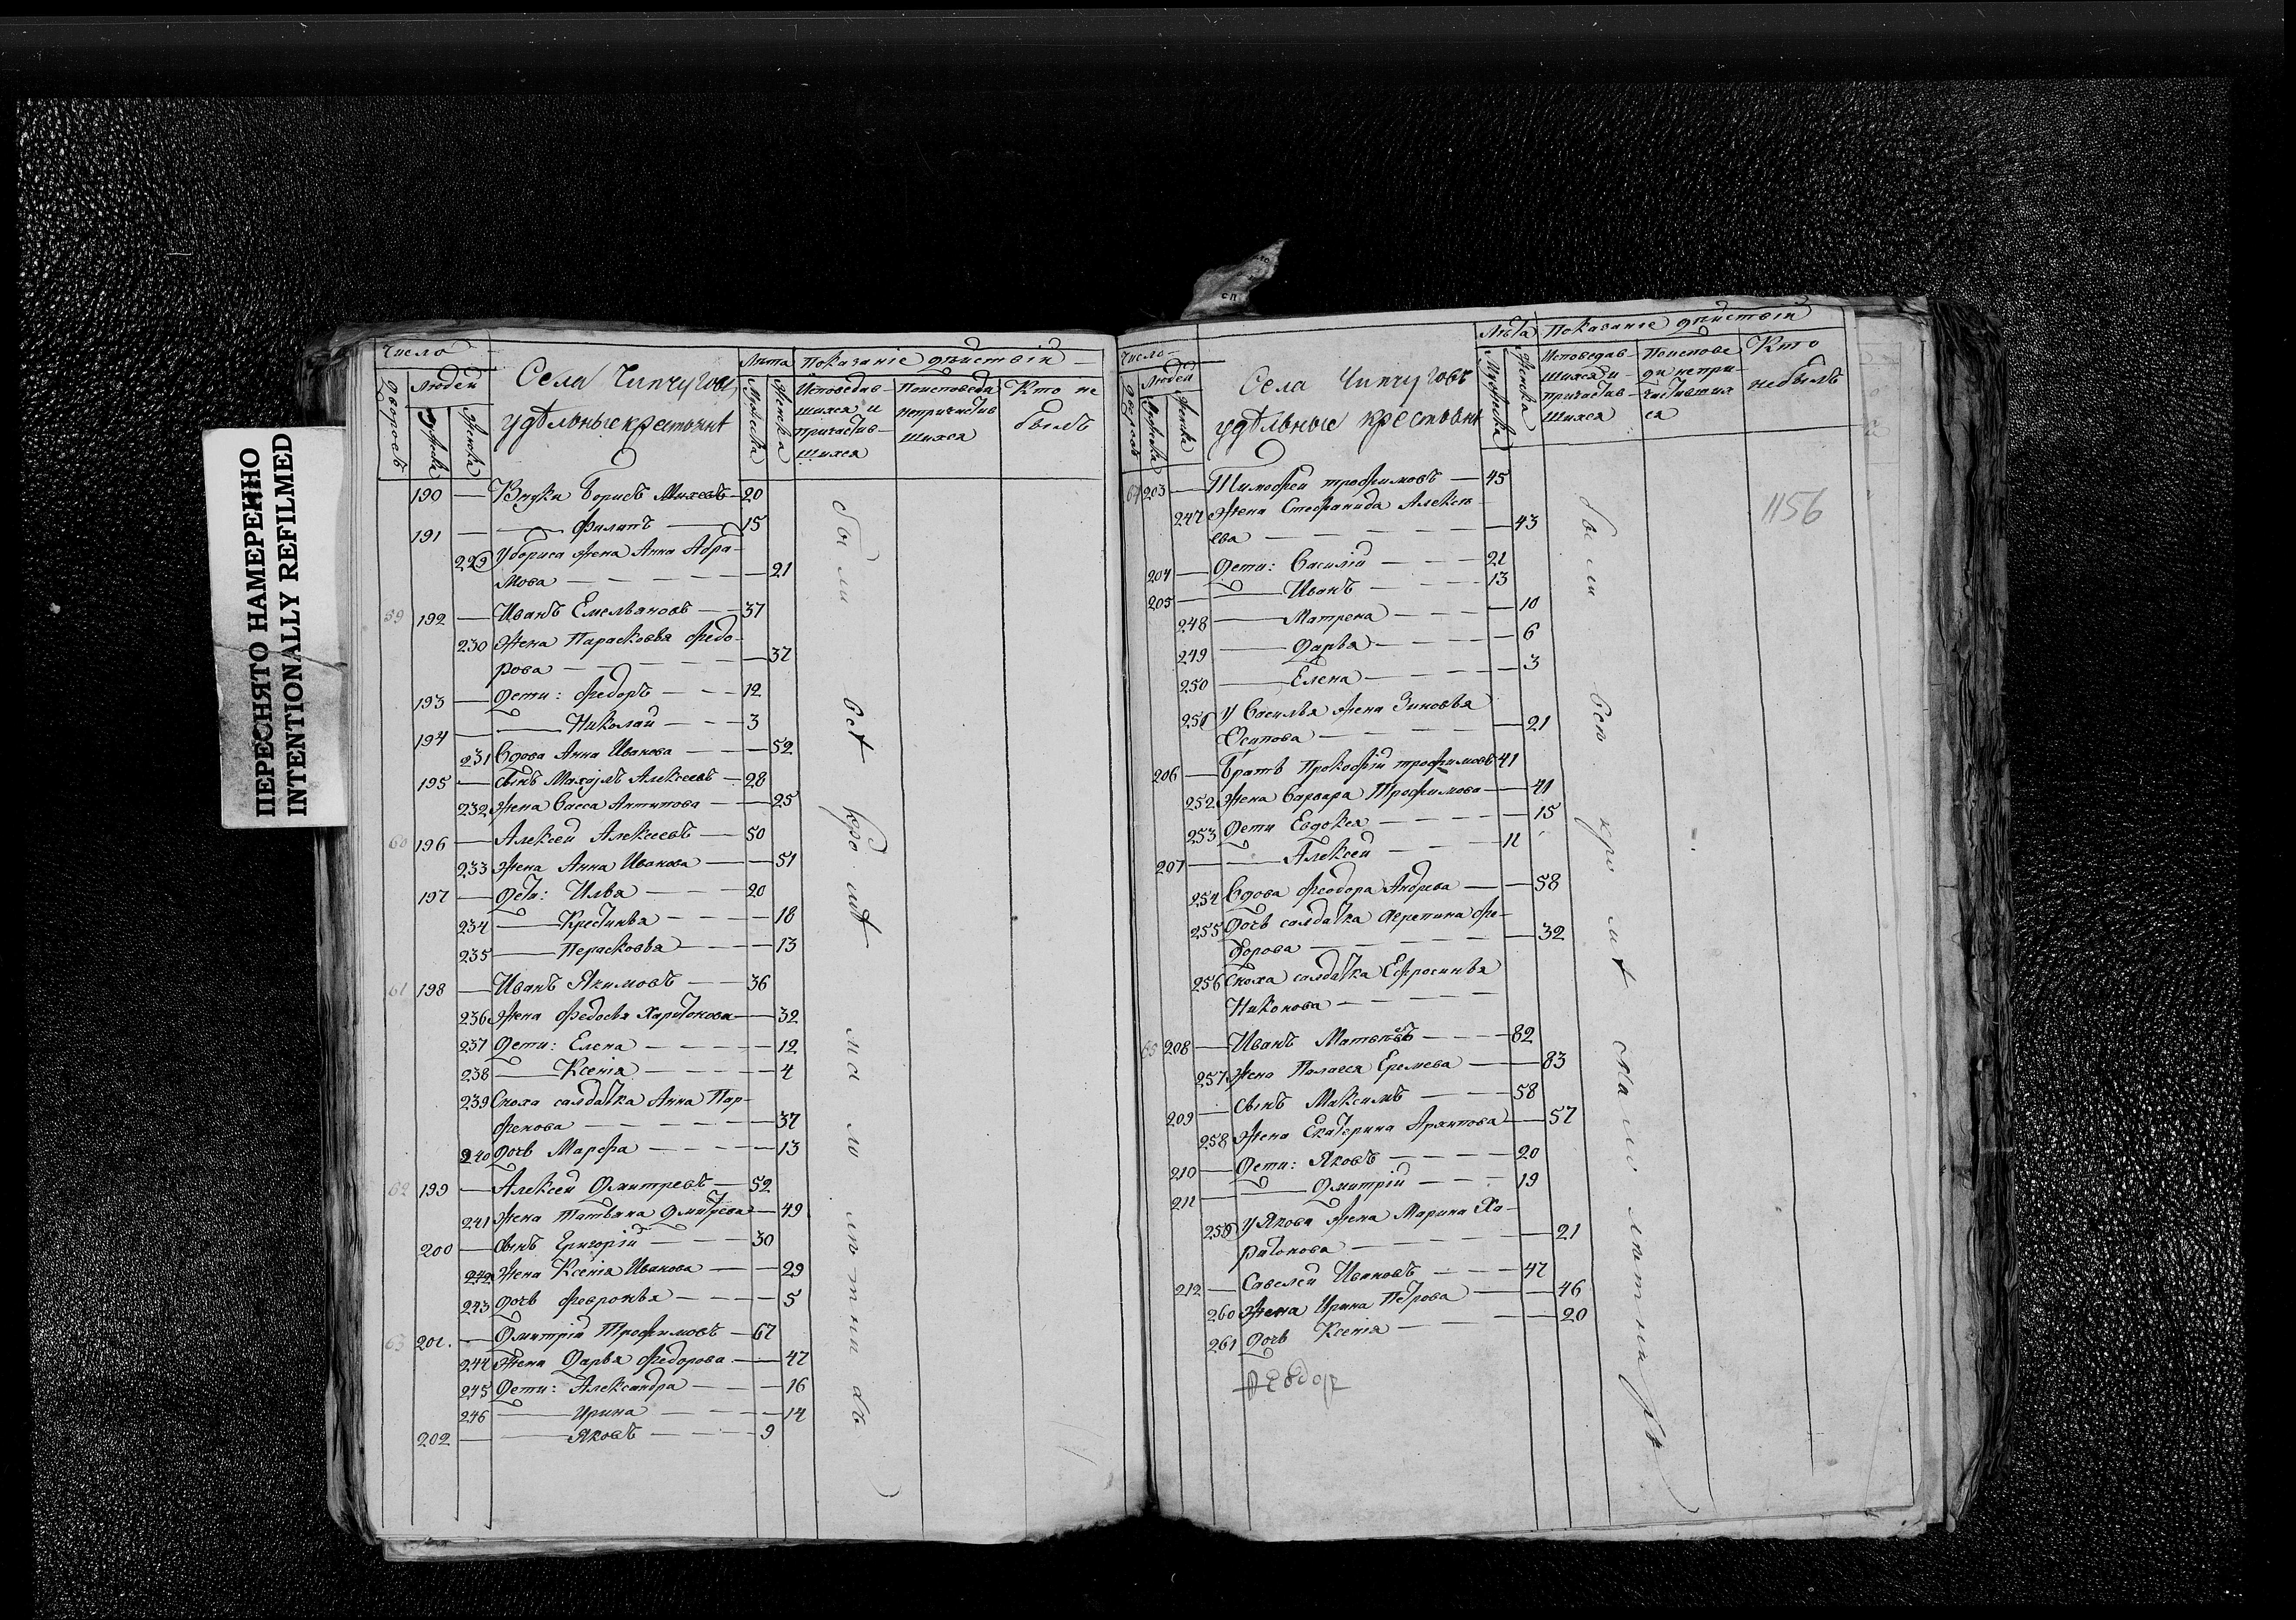 ПЕРЕСНЯТО НАМЕРЕННО
INTENTIONALLY REFILMED
Число
дворовъ
людей
мужеска
женска
Села Чипчугова,
удѣльные крестьянѣ
Лѣта
мужеска
женска
показаніе дѣйствій
Исповедав-
шихся и
причастив-
шихся
Поисповеда
непричастив
шихся
Кто не
былъ
190 — Внука Борисъ Михеевъ — 20
191 — Филипъ — 15
229 У бориса жена Анна Абра-
мова — 21
59 192 — Иванъ Емельяновъ — 37
230 Жена Парасковья федо-
рова — 37
193 — Дети: Федоръ — 12
194 — Николай — 3
231 Вдова Анна Иванова — 52
195 — Сынъ Алексеевъ — 28
232 Жена Васса Антипова — 25
60 196 — Алексей Алексеевъ — 50
233 Жена Анна Иванова — 51
197 — Дети: Илья — 20
234 — Крестинья — 18
235 — Перасковья — 13
61 198 — Иванъ Якимовъ — 36
236 Жена Федосья Харитонова — 32
237 Дети: Елена — 12
238 — Ксенія — 4
239 Сноха салдатка Анна Пар-
фенова — 37
240 дочь Марфа — 13
62 199 — Алексей Дмитревъ — 52
241 Жена Татьяна Дмитрева — 49
200 — Сынъ Григорій — 30
242 Жена Ксенія Иванова — 29
243 дочь Февронья — 5
63 201. — Дмитрій Трофимовъ — 67
244 Жена Дарья федорова — 47
245 Дети: Александра — 16
246 — Ирина — 14
202 — Яковъ — 9
были всѣ
Число
дворовъ
людей
мужеска
женска
Села Чипчуговъ
удѣльные крестьянѣ
Лѣта
мужеска
женска
Показаніе дѣйствій
Исповедав-
шихся и
причастив-
шихся
Поисповѣ
ди непри-
частивших
ся
Кто
небылъ
1156
64 203 — Тимофей трофимовъ — 45
247 Жена Стефанида Алексѣ
ева — 43
204 — Дети: Василій — 22
205 — Иванъ — 13
248 — Матрена — 10
249 — Дарья — 6
250 — Елена — 3
251 У Василья жена Зиновья
Осипова — 21
206 — Братъ Прокофій трофимовъ 41
252 Жена Варвара Трофимова — 41
253 Дети Евдокея — 15
207 — Алексей — 11
254 Вдова Феодора Андрева — 58
255 Дочь салдатка Агрепина Фе-
дорова — 32
256 Сноха салдатка Ефросинья
Никонова —
65 208 — Иванъ Матвѣевъ — 82
257 Жена Еремева — 83
209 — Сынъ Максимъ — 58
258 Жена Екатерина Архипова — 57
210 — Дети: Яковъ — 20
211 — Дмитрій — 19
259 У Якова жена Марина Ха-
ритонова — 21
212 — Савелей Ивановъ — 47
260 Жена Ирина Петрова — 46
261 Дочь Ксенія — 20
были всѣ